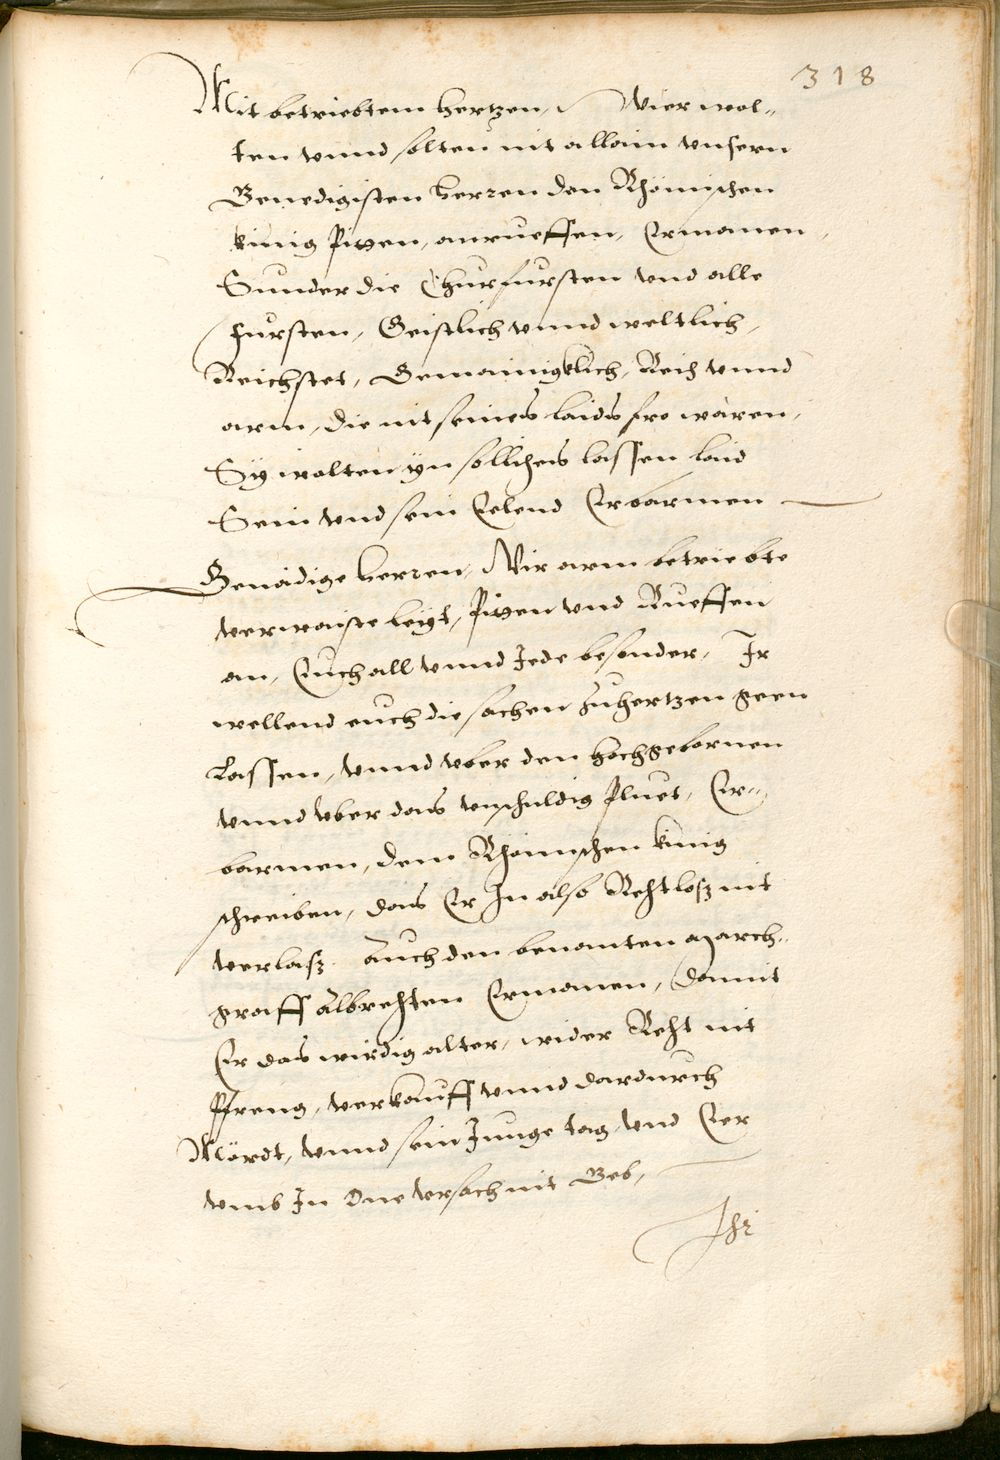 318
Mit betriebtem hertzen, Wier wol„
ten vnnd solten nit allain vnsern
Genedigisten herren den Rhömischen
künig Pitten, anrueffen, Ermanen,
Sunder die Churfursten vnd alle
fursten, Geistlich vnnd weltlich,
Reichstet, Gemainigklich, Reich vnnd
arm, die nit seines laids fro wären,
Sÿ wolten ÿn sollichs lassen laid
Sein vnd sein Eelend Erbarmen
Genädige herren, Wir arm betriebte
verwaiste leÿt, Pitten vnd Rueffen
an, Euch all vnnd Jede besonder, Jr
wellend euch die sachen zuhertzen geen
Lassen, vnnd vber den hochgebornen
vnnd vber das vnschuldig Pluet, Er„
barmen, dem Rhömischen künig
schreiben, das Er Jn also Rechtlosz nit
verlasz Auch den benanten March„
graff Albrechten Ermanen, damit
Er das wirdig alter, wider Recht nit
Pfreng, verkauff vnnd dardurch
Mördt, vnnd sein Junge tag, vnd Eer
vmb Jn One vrsach nit Geb,
Ihr